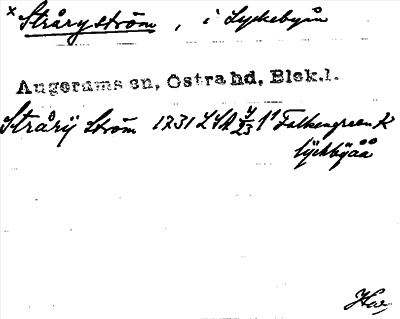 x Stråryström, i Lyckebyån
Augerums sn, Östra hd, Blek.l.
Strårÿ Ström 1731 LSA Falkengreen K
lÿckbÿåå